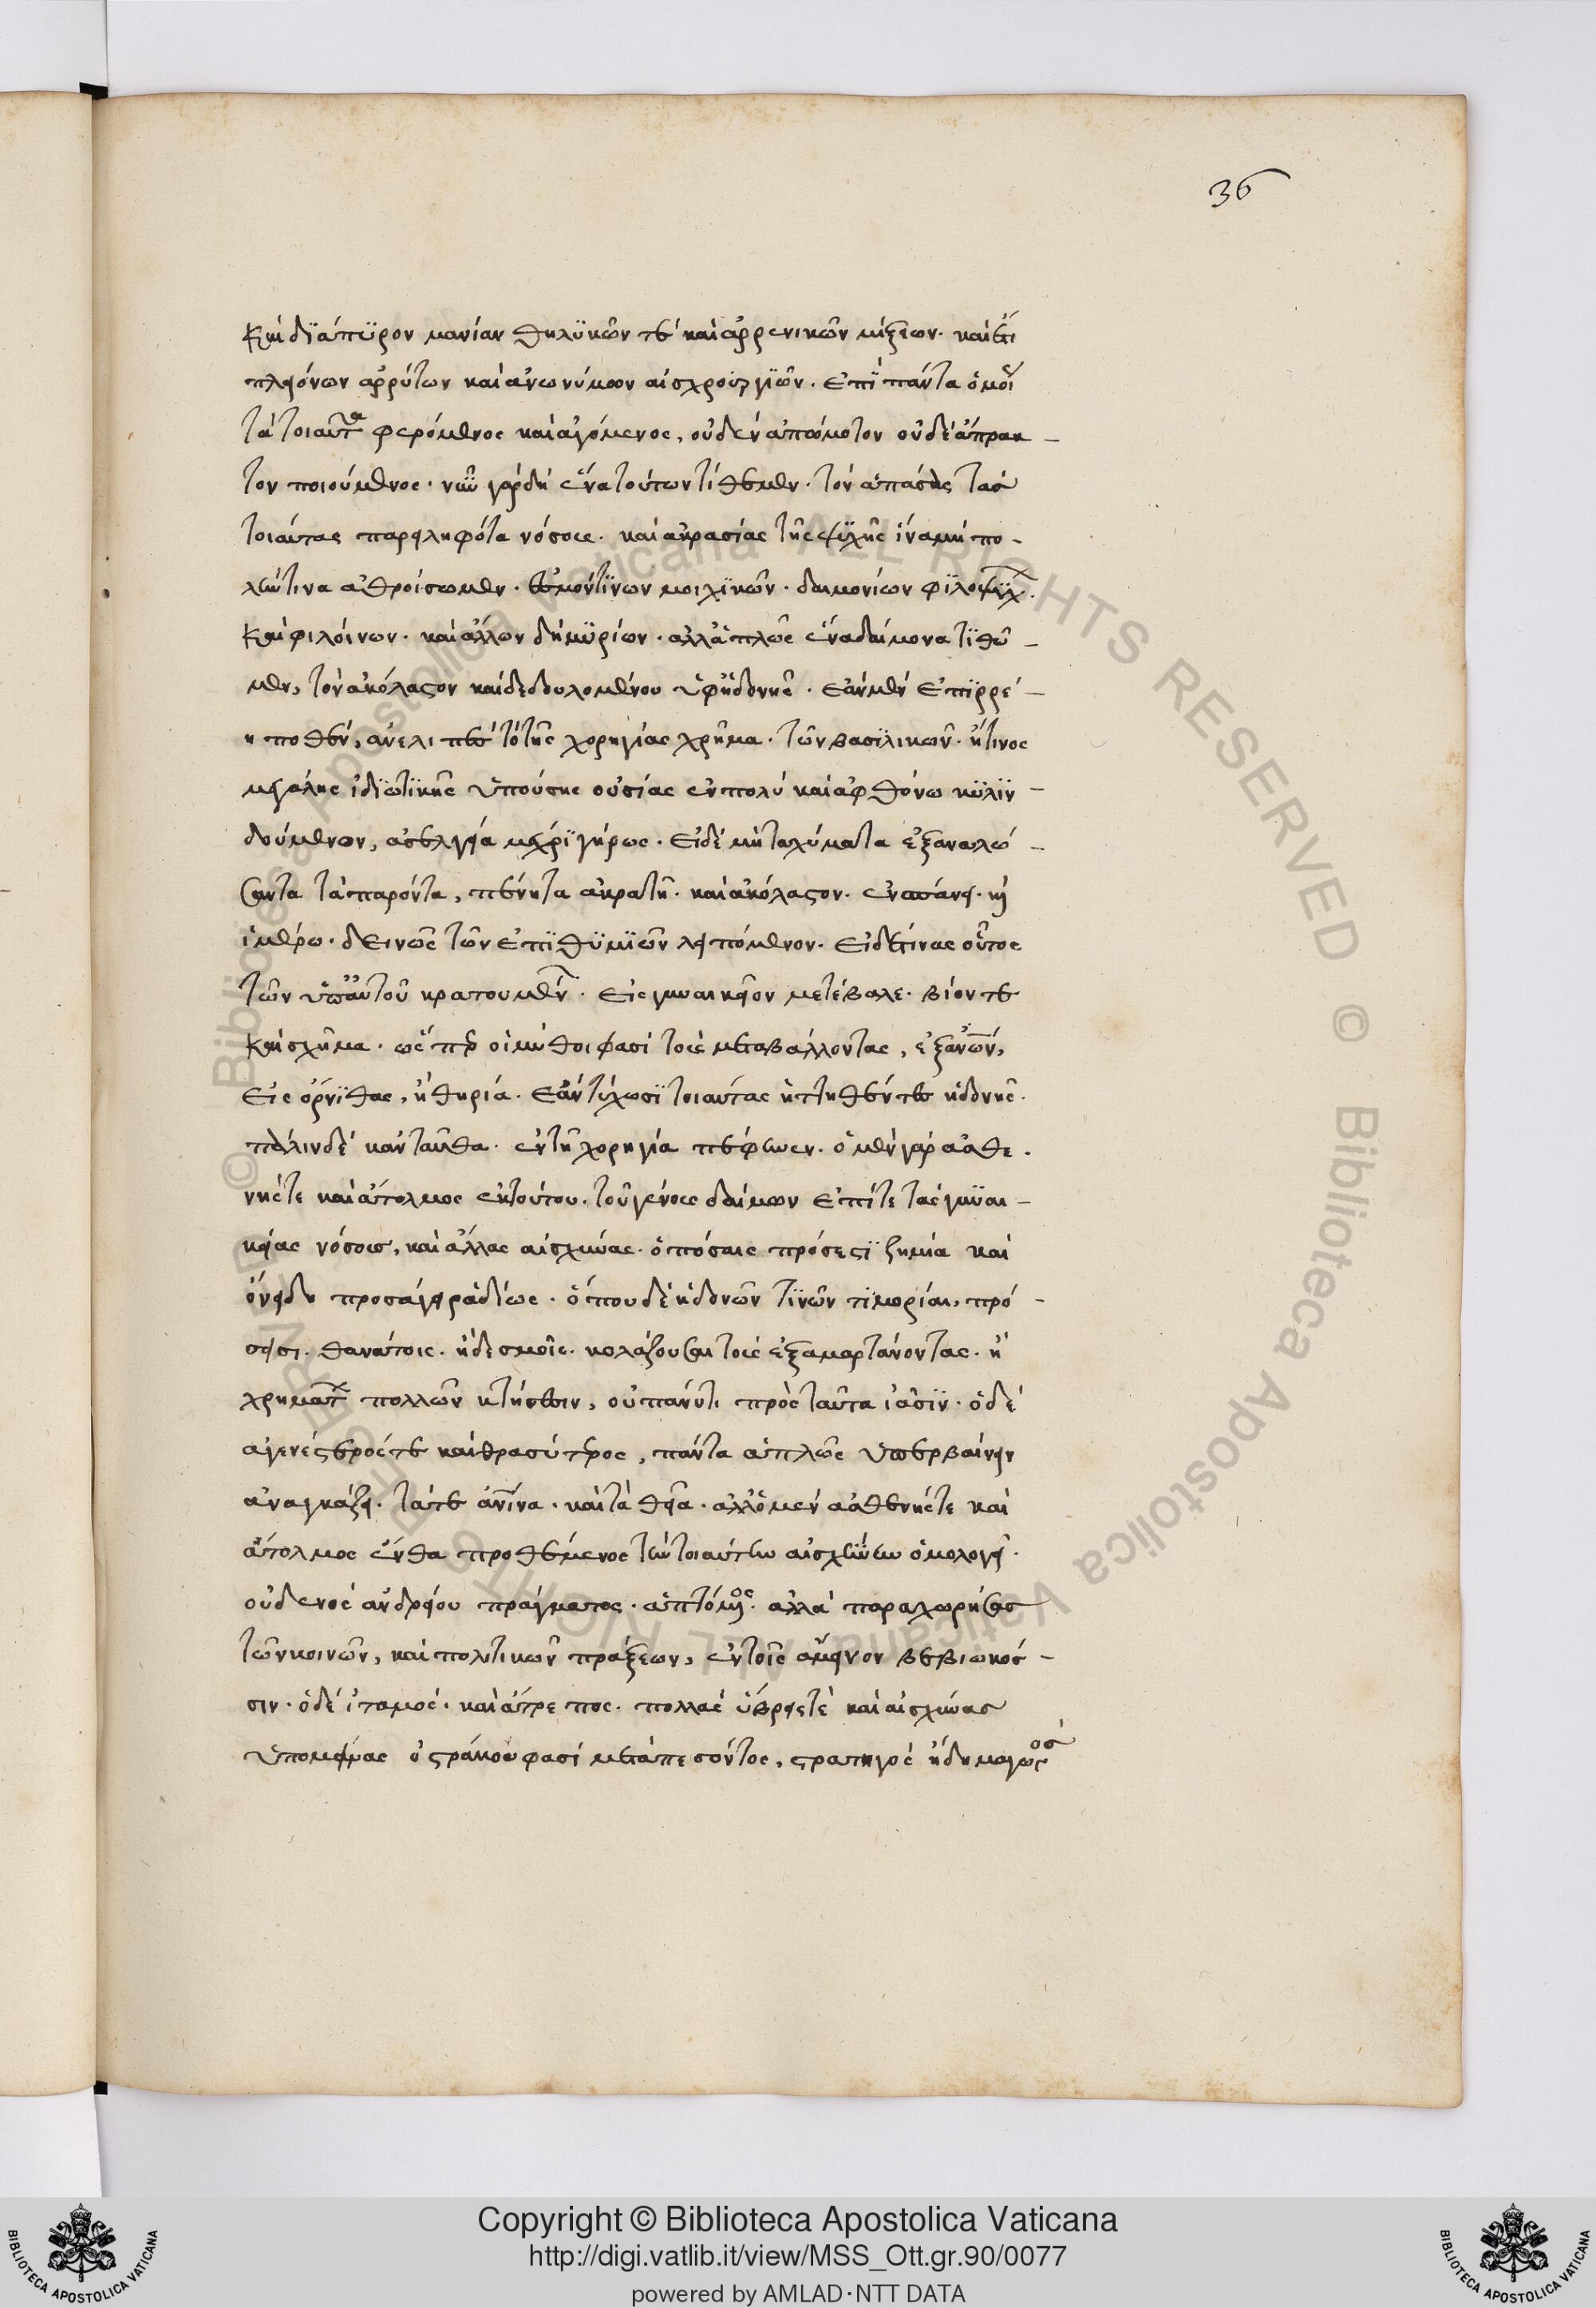 36
καὶ διάπυρον μανίαν θηλυκῶν τε καὶ ἀρρενικῶν μίξεων· καὶ ἔτι
πλειόνων ἀρρύτων καὶ ἀνωνύμων αἰσχρουργιῶν· ἐπὶ πάντα ὁμοί
τὰ τοιαῦτα φερόμενος καὶ ἀγόμενος, οὐδὲν ἀπώμοτον οὐδὲ ἄπρακ-
τον ποιούμενος· νῦν γὰρ δὴ ἕνα τούτων τίθεμεν· τὸν ἁπάσας τὰς
τοιαύτας παρειληφότα νόσους· καὶ ἀκρασίας τῆς ψυχῆς ἵνα μὴ πο-
λύν τινα ἀθροίσωμεν· ἐσμόν τινων μοιχικῶν· δαιμονίων φιλοψύχ
καὶ φιλοίνων· καὶ ἄλλων δὴ μυρίων· ἀλλ' ἁπλῶς ἕνα δαίμονα τιθῶ-
μεν, τὸν ἀκόλαστον καὶ δεδουλομένου ὑφ' ἡδονῆς· ἐὰν μὲν ἐπιρρέ-
η ποθὲν, ἀνελιπὲς τὸ τῆς χορηγίας χρῆμα· τῶν βασιλικῶν· ἤ τινος
μεγάλης ἰδιωτικῆς ὑπούσης οὐσίας ἐν πολὺ καὶ ἀφθόνω κυλιν-
δούμενον, ἀσελγεία μέχρι γήρως· εἰ δὲ μὴ ταχύ μάλα ἐξαναλώ-
σαντα τὰ παρόντα, πένητα ἀκρατῆ· καὶ ἀκόλαστον· ἐν σπάνει· καὶ
ἱμέρω· δεινῶς τῶν ἐπιθυμιῶν λειπόμενον· εἰ δέ τινας οὗτος
τῶν ὑπ' αὐτοῦ κρατουμένων· εἰς γυναικεῖον μετέβαλε· βίον τε
καὶ σχῆμα· ὥσπερ οἱ μῦθοι φασὶ τοὺς μεταβάλλοντας, ἐξ ἀνων,
εἰς ὄρνιθας, ἢ θηρία· ἐὰν τύχωσι τοιαύτας ἡττηθέντες ἡδονῆς·
πάλιν δὲ κἀνταῦθα· ἐν τῆ χορηγία πέφυνεν· ὁ μὲν γὰρ ἀσθε-
νής τε καὶ ἄτολμος ἐκ τούτου· τοῦ γένους δαίμων ἐπί τε τὰς γυναι-
κείας νόσους, καὶ ἄλλας αἰσχύνας· ὁπόσαις πρόσεστι ζημία καὶ
ὀνείδη προσάγει ῥαδίως· ὅπου δὲ ἡδονῶν τινῶν τιμωρίαι, πρό-
σεισι· θανάτοις· ἢ δεσμοῖς· κολάζουσαι τοὺς ἐξαμαρτάνοντας· ἢ
χρημάτων πολλῶν κτήσεσιν, οὐ πάνυ τι πρὸς ταῦτα ἰᾶσιν· ὁ δὲ
ἀγενέστερός τε καὶ θρασύτερος, πάντα ἁπλῶς ὑπερβαίνειν
ἀναγκάζει· τά τε ἀνίνα· καὶ τὰ θεῖα· ἀλλ' ὁ μὲν ἀσθενής τε καὶ
ἄτολμος ἔνθα προθέμενος τὴν τοιαύτην αἰσχύνην ὁμολογεῖ·
οὐδενὸς ἀνδρείου πράγματος· ἁπτόμενος· ἀλλὰ παραχωρήσας
τῶν κοινῶν, καὶ πολιτικῶν πράξεων, ἐν τοῖς ἄμεινον βεβιωκό-
σιν· ὁ δὲ ἰταμὸς· καὶ ἄτρεπτος· πολλὰς ὕβρεις τὲ καὶ αἰσχύνας
ὑπομείνας ὀστράκου φασὶ μεταπεσόντος, στρατηγὸς ἢ δημαγωγὸς